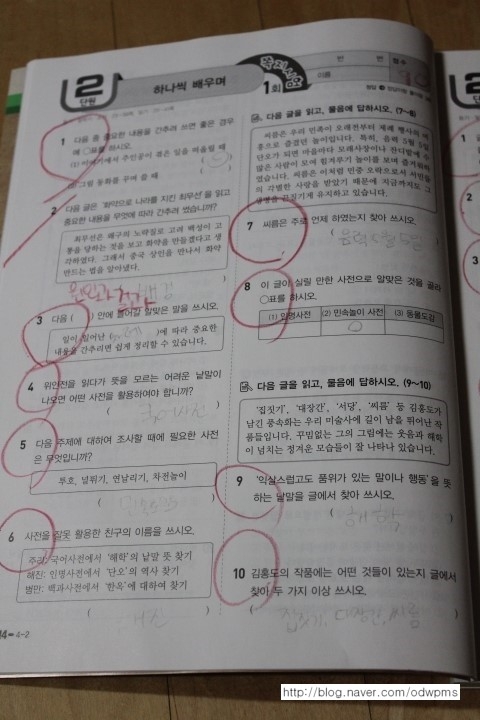 2
단원
하나씩 배우며
쪽지시험
1회
번
번
점수
이름
90
1 다음 중 중요한 내용을 간추려 쓰면 좋은 경우
에 ○표를 하시오.
(1) 이야기에서 주인공이 겪은 일을 써놓을 때
(2) 그림 동화를 꾸며 줄 때
2 다음 글은 '화약으로 나라를 지킨 최무선'을 읽고
중요한 내용을 무엇에 따라 간추려 썼습니까?
최무선은 왜구의 노략질로 고려 백성이 고
통을 당하는 것을 보고 화약을 만들겠다고 생
각하였다. 그래서 중국 상인을 만나서 화약
만드는 법을 알아냈다.
원인과 결과
3 다음 ( ) 안에 들어갈 알맞은 말을 쓰시오.
일이 일어난 ( )에 따라 중요한
내용을 간추리면 쉽게 정리할 수 있습니다.
4 위인전을 읽다가 뜻을 모르는 어려운 낱말이
나오면 어떤 사전을 활용하여야 합니까?
( 국어사전 )
5 다음 주제에 대하여 조사할 때에 필요한 사전
은 무엇입니까?
투호, 널뛰기, 연날리기, 차전놀이
6 사전을 잘못 활용한 친구의 이름을 쓰시오.
주리: 국어사전에서 '해학'의 낱말 뜻 찾기
해진: 인명사전에서 '단오'의 역사 찾기
병만: 백과사전에서 '한옥'에 대하여 찾기
( 해진 )
다음 글을 읽고, 물음에 답하시오. (7~8)
씨름은 우리 민족이 오래전부터 계례 행사의 여
흥으로 즐겼던 놀이입니다. 특히, 음력 5월 5일
단오가 되면 마을마다 모래사장이나 잔디밭에 수
많은 사람이 모여 힘겨루기 놀이를 보며 즐거워하
였습니다. 씨름은 이처럼 민중 오락으로서 서민들
의 각별한 사랑을 받았기 때문에 지금까지도 그
생명을 끈질기게 유지하고 있습니다.
7 씨름은 주로 언제 하였는지 찾아 쓰시오.
( 음력 5월 5일 )
8 이 글이 실릴 만한 사전으로 알맞은 것을 골라
○표를 하시오.
(1) 인명사전 (2) 민속놀이 사전 (3) 동물도감
○
다음 글을 읽고, 물음에 답하시오. (9~10)
'집짓기', '대장간', '서당', '씨름' 등 김홍도가
남긴 풍속화는 우리 미술사에 길이 남을 뛰어난 작
품들입니다. 꾸밈없는 그의 그림에는 웃음과 해학
이 넘치는 정겨운 모습들이 잘 나타나 있습니다.
9 '익살스럽고도 품위가 있는 말이나 행동'을 뜻
하는 낱말을 글에서 찾아 쓰시오.
( 해학 )
10 김홍도의 작품에는 어떤 것들이 있는지 글에서
찾아 두 가지 이상 쓰시오.
( 집짓기, 대장간, 씨름 )
14 4-2
http://blog.naver.com/odwpms